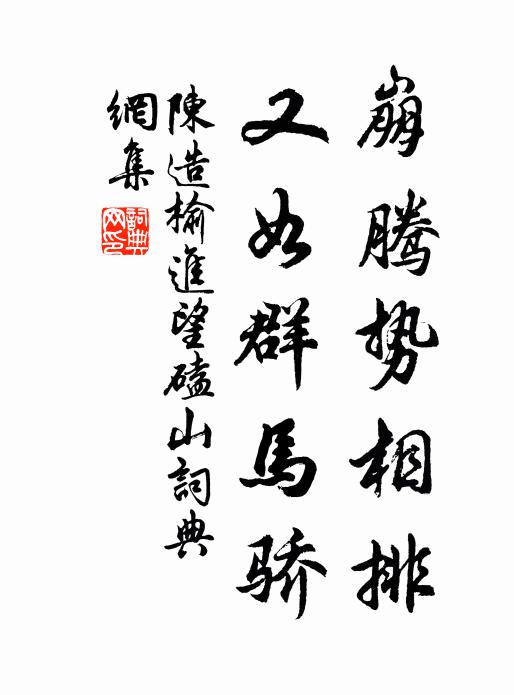 崩腾势相排
又如群馬骄
陳造榆進望磕山詞典
網集
詞典
网印